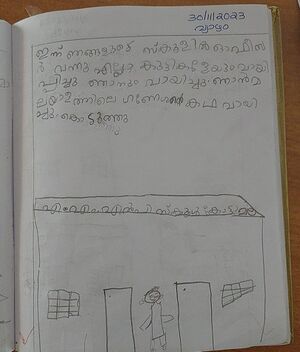 30/11/2023
വ്യാഴം
ഇന്ന് ഞങ്ങളുടെ സ്കൂളിൽ ഓഫീസ
ർ വന്നു എല്ലാ കുട്ടികളേയും വായി
പ്പിച്ചു ഞാനും വായിച്ചു ഞാൻ മ
ലയാളത്തിലെ ഗണേശൻ കഥ വായി
ച്ചു കൊടുത്തു
എ.എം.എൽ.പി.സ്കൂൾ